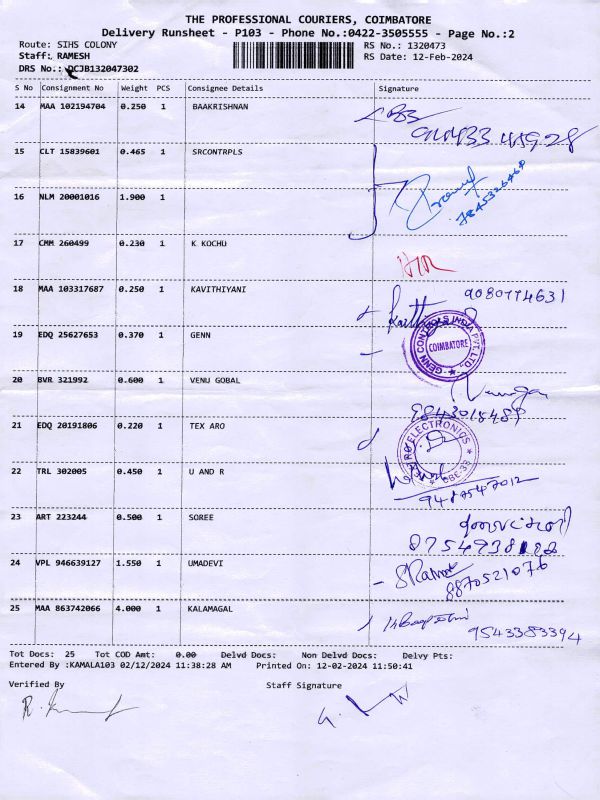 THE PROFESSIONAL COURIERS, COIMBATORE
Delivery Runsheet - P103 - Phone No.:0422-3505555 - Page No.:2
Route: SIHS COLONY RS No.: 1320473
Staff: RAMESH RS Date: 12-Feb-2024
DRS No.: QCJB132047302
S No Consignment No Weight PCS Consignee Details Signature
14 MAA 102194704 0.250 1 BAAKRISHNAN
15 CLT 15839601 0.465 1 SRCONTRPLS
16 NLM 20001016 1.900 1
17 CMM 260499 0.230 1 K KOCHU
18 MAA 103317687 0.250 1 KAVITHIYANI 9080774631
19 EDQ 25627653 0.370 1 GENN GENN CONTROLS INDIA PVT. LTD., COIMBATORE
20 BVR 321992 0.600 1 VENU GOBAL
9843018489
21 EDQ 20191806 0.220 1 TEX ARO
22 TRL 302005 0.450 1 U AND R
9487547012
23 ART 223244 0.500 1 SOREE
24 VPL 946639127 1.550 1 UMADEVI
8870521076
25 MAA 863742066 4.000 1 KALAMAGAL
9543383394
Tot Docs: 25 Tot COD Amt: 0.00 Delvd Docs: Non Delvd Docs: Delvy Pts:
Entered By :KAMALA103 02/12/2024 11:38:28 AM Printed On: 12-02-2024 11:50:41
Verified By Staff Signature